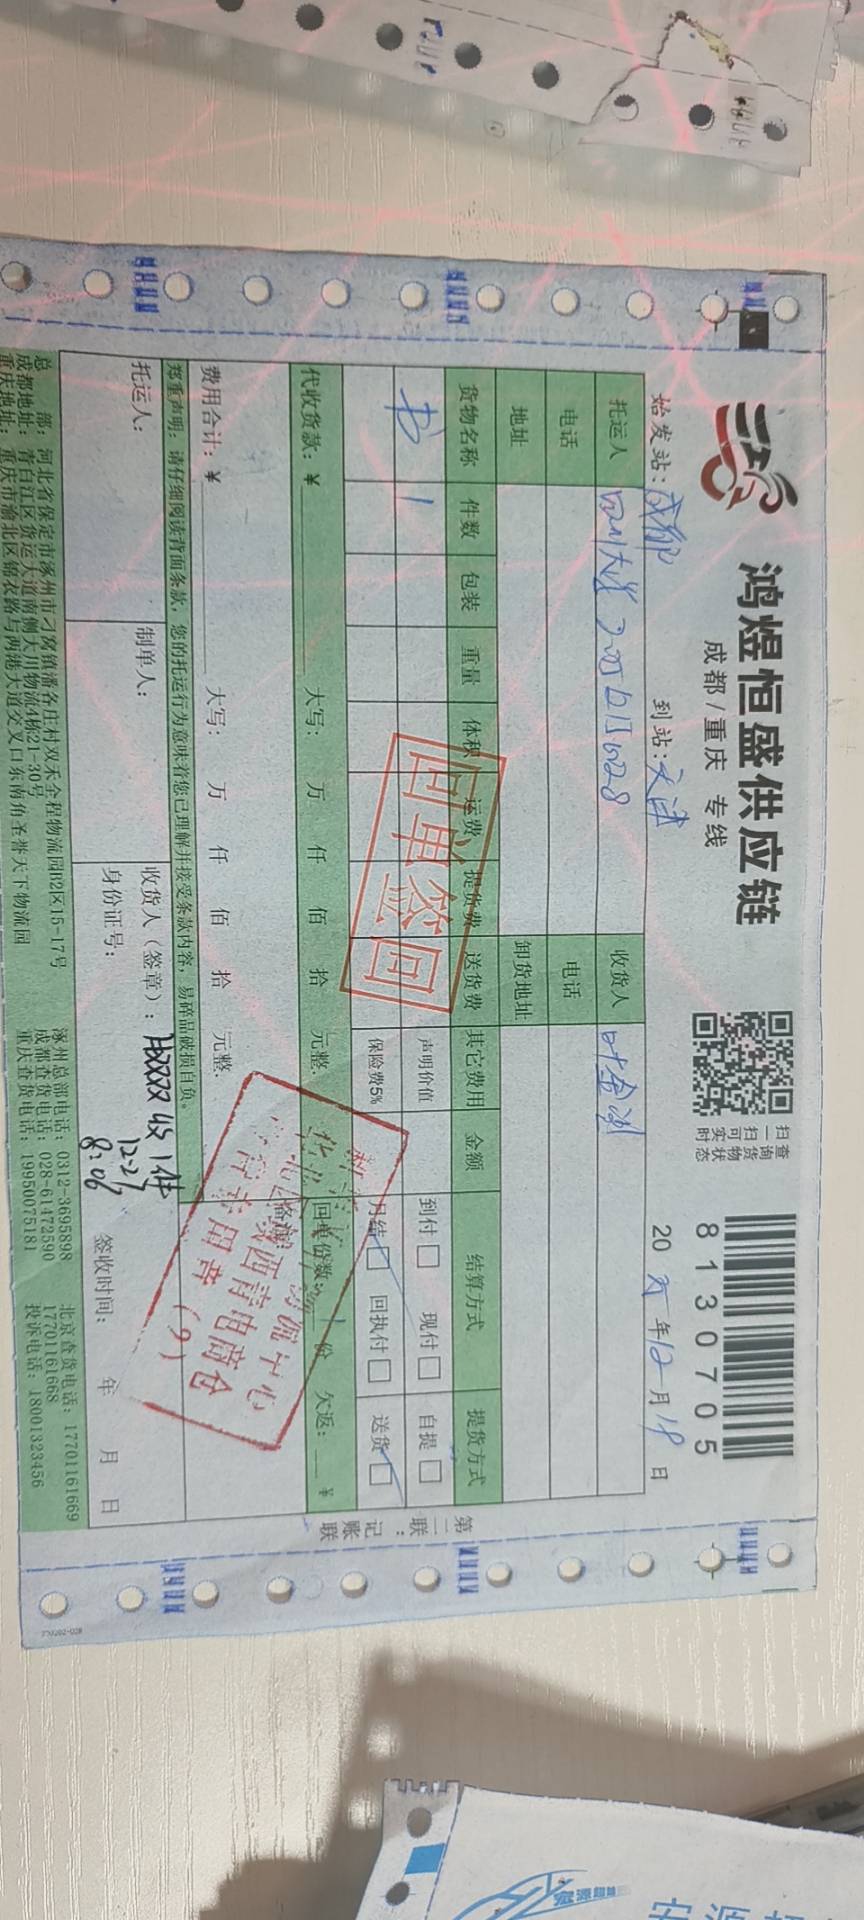 鸿煜恒盛供应链
成都/重庆 专线
扫一扫可实时
查询货物状态
8130705
始发站：成都
到站：天津
20 25 年 12 月 18 日
托运人
四川大学
收货人
叶金
电话
电话
地址
卸货地址
货物名称 件数 包装 重量 体积 运费 提货费 送货费 其它费用 金额 结算方式 提货方式
书 1
声明价值
到付 现付
自提
保险费5%
月结 回执付
送货
回单签回
代收货款：￥ 大写： 万 仟 佰 拾 元整.
回单份数： 1 份 欠返： ￥
费用合计：￥ 大写： 万 仟 佰 拾 元整.
备注
物流中心
西青电商仓
专用章（9）
郑重声明：请仔细阅读背面条款，您的托运行为意味着您已理解并接受条款内容，易碎品破损自负。
托运人：
制单人：
收货人（签章）：
1件
12.27
8:06
身份证号：
签收时间： 年 月 日
第二联：记账联
总 部：河北省保定市涿州市刁窝镇潘各庄村双禾全程物流园B2区15-17号
涿州总部电话：0312-3695898
北京查货电话：17701161669
17701161668
成都地址：青白江区货运大道南侧大川物流4栋21-30号
成都查货电话：028-61472590
重庆地址：重庆市渝北区锦衣路与两港大道交叉口东南角圣誉天下物流园
重庆查货电话：19950075181
投诉电话：18001323456